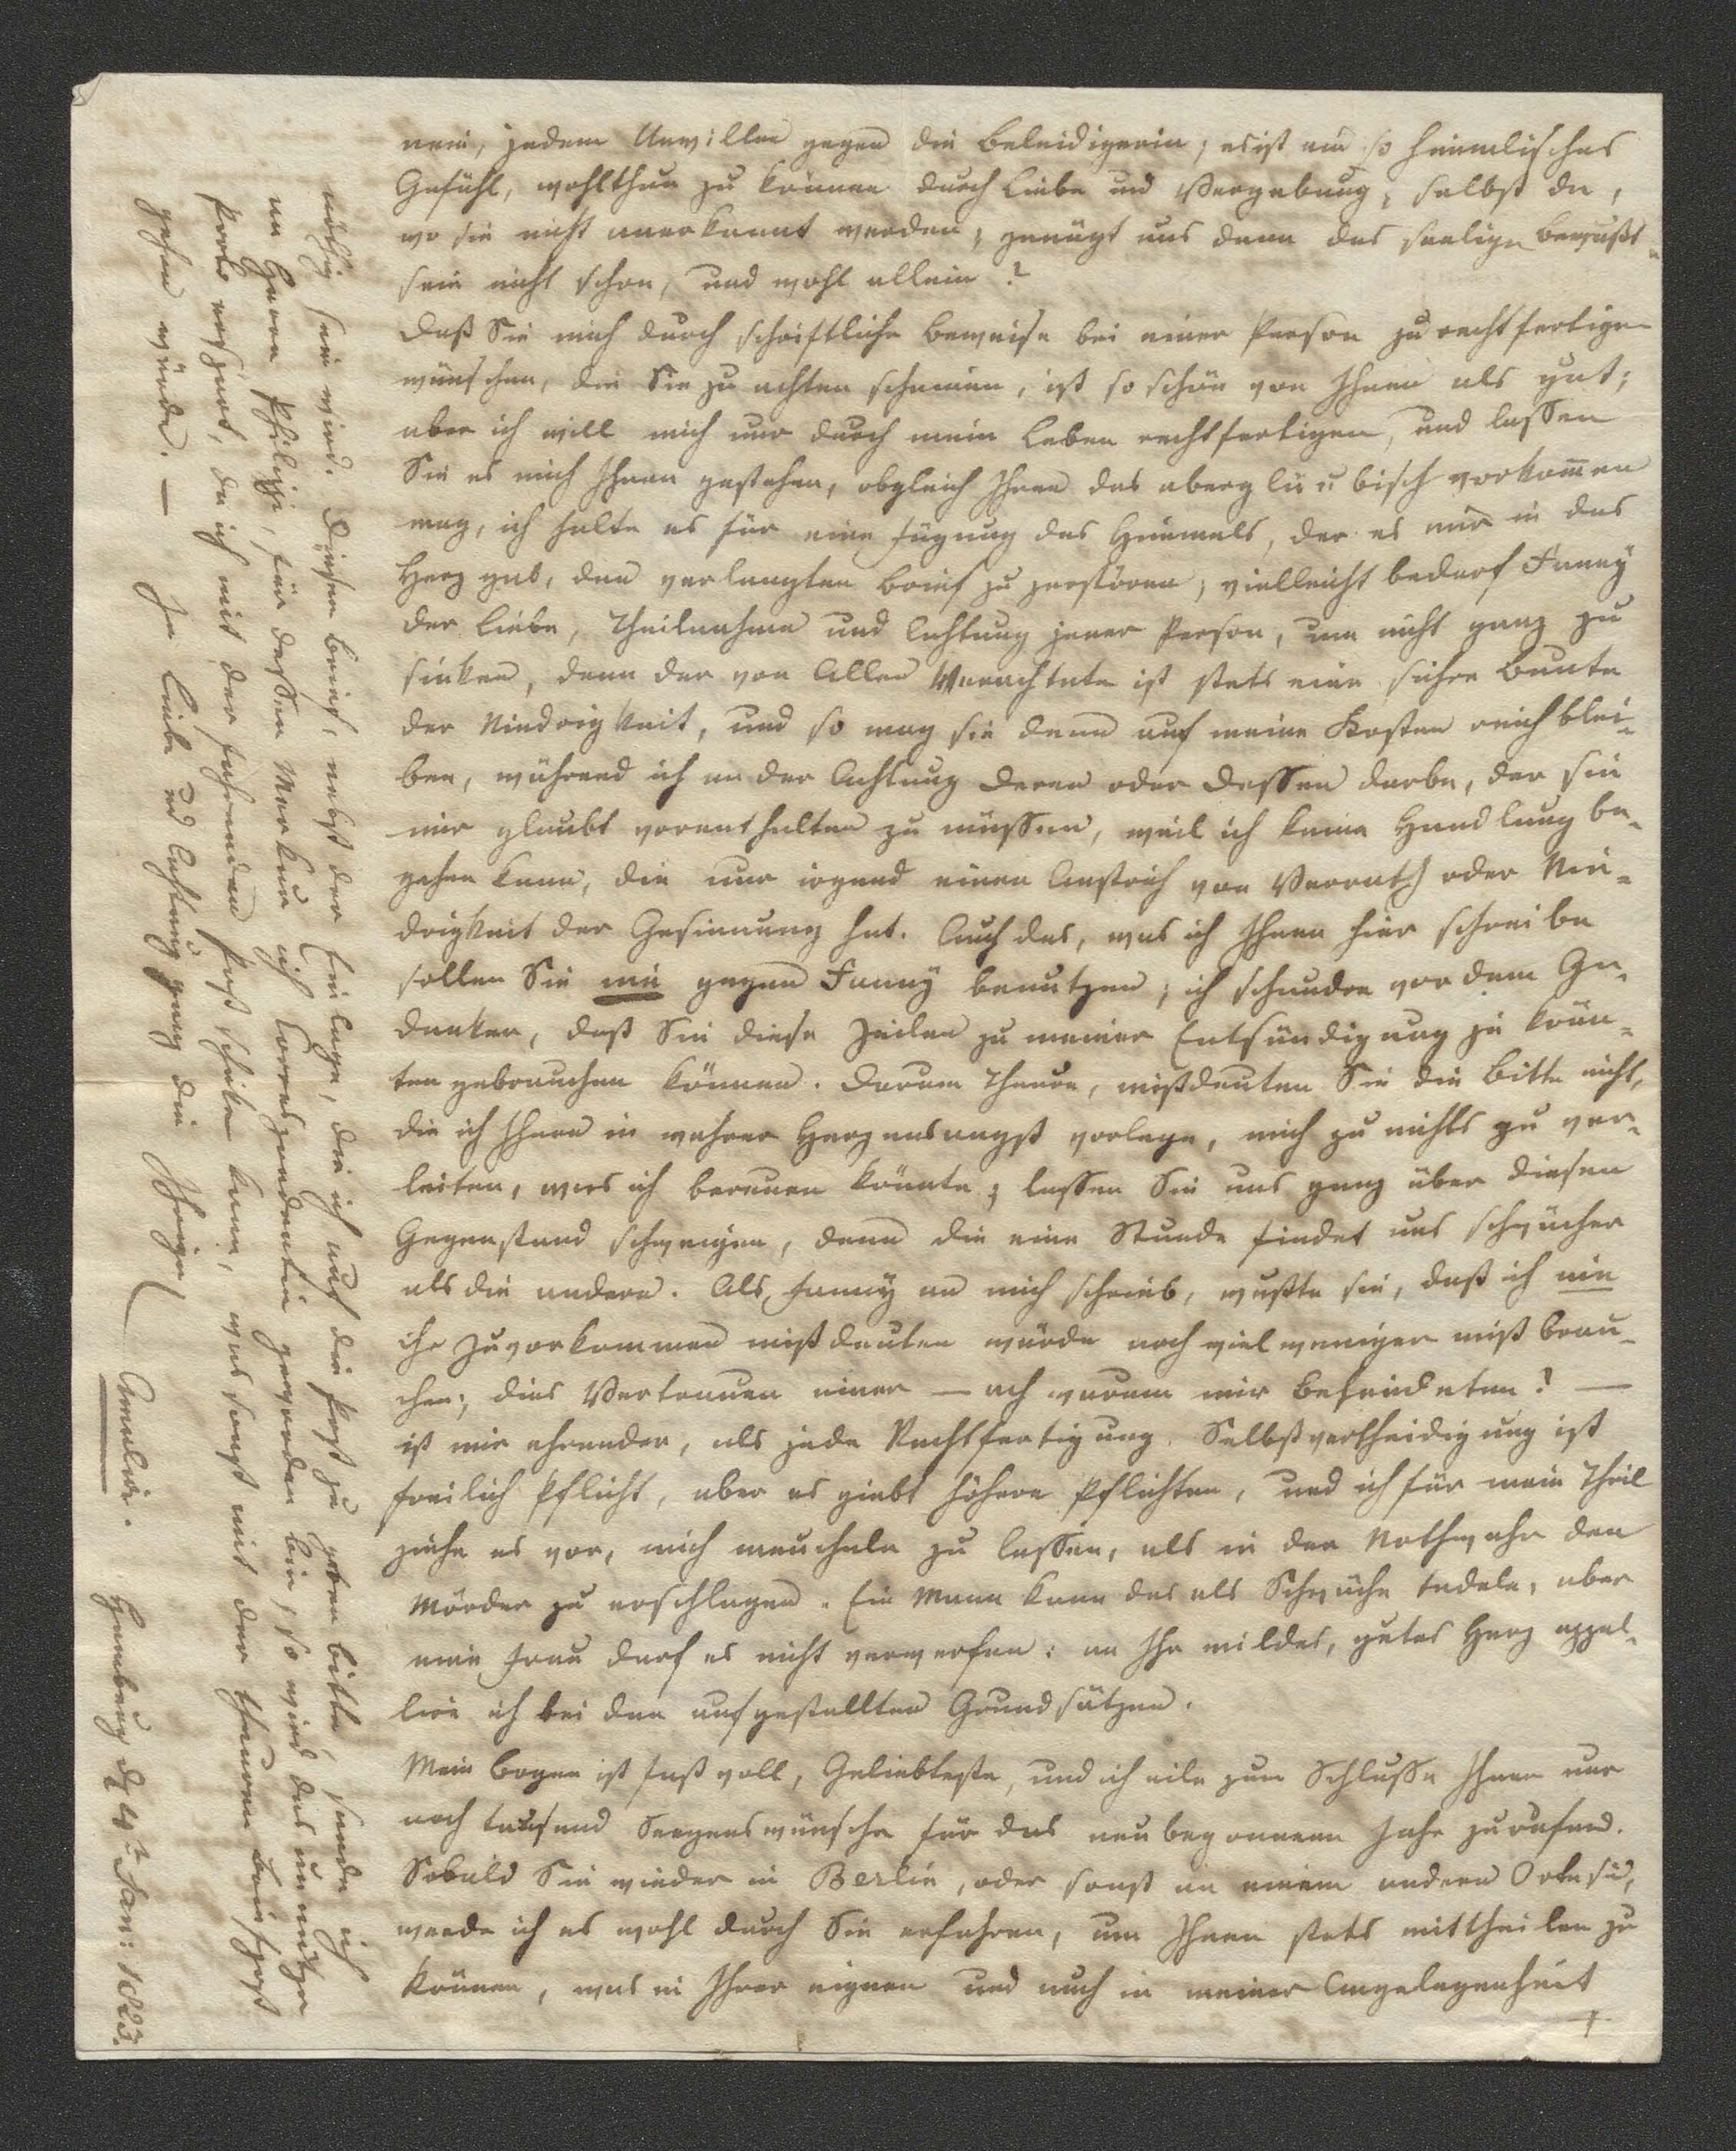 nein, jedem Unwillen gegen die Beleidigerin; es ist ein so himmlisches
Gefühl, wohlthun zu können durch Liebe und Vergebung, selbst da,
wo sie nicht anerkannt werden; genügt uns denn das seelige Bewußt-
sein nicht schon, und wohl allein?
Daß Sie mich durch schriftliche Beweise bei einer Person zu rechtfertigen
wünschen, die Sie zu achten scheinen, ist so schön von Ihnen als gut;
aber ich will mich nur durch mein Leben rechtfertigen, und lassen
Sie es mich Ihnen gestehen, obgleich Ihnen das abergläubisch vorkom̅en
mag, ich halte es für eine Fügung des Himmels, der es mir in das
Herz gab, den verlangten Brief zu zerstören; vielleicht bedarf Fanny
der Liebe, Theilnahme und Achtung jener Person, um nicht ganz zu
sinken, denn der von Allen Verachtete ist stets eine sichre Beute
der Niedrigkeit, und so mag sie denn auf meine Kosten reich blei-
ben, während ich an der Achtung deren oder dessen darbe, der sie
mir glaubt vorenthalten zu müssen, weil ich keine Handlung be-
gehen kann, die nur irgend einen Anstrich von Verrath oder Nie-
drigkeit der Gesinnung hat. Auch das, was ich Ihnen hier schreibe
sollen Sie nie gegen Fanny benutzen; ich schaudre vor dem Ge-
danken, daß Sie diese Zeilen zu meiner Entsündigung je könn-
ten gebrauchen können. Darum Theure, mißdeuten Sie die Bitte nicht,
die ich Ihnen in wahrer Herzensangst vorlege, mich zu nichts zu ver-
leiten, was ich bereuen könnte; lassen Sie uns ganz über diesen
Gegenstand schweigen, denn die eine Stunde findet uns schwächer
als die andere. Als Fanny an mich schrieb, wußte sie, daß ich nie
ihr Zuvorkommen mißdeuten würde noch viel weniger mißbrau-
chen; dies Vertrauen einer — ach warum mir Befeindeten? —
ist mir ehrender, als jede Rechtfertigung. Selbstvertheidigung ist
freilich Pflicht, aber es giebt höhere Pflichten, und ich für mein Theil
ziehe es vor, mich meucheln zu lassen, als in der Nothwehr den
Mörder zu erschlagen. Ein Mann kann das als Schwäche tadeln, aber
eine Frau darf es nicht verwerfen: an Ihr mildes, gutes Herz appel-
lire ich bei den aufgestellten Grundsätzen.
Mein Bogen ist fast voll, Geliebteste, und ich eile zum Schlusse Ihnen nur
noch tausend Seegenswünsche für das neubegonnene Jahr zurufend.
Sobald Sie wieder in Berlin, oder sonst an einem andern Orte sind,
werde ich es wohl durch Sie erfahren, um Ihnen stets mittheilen zu
können, was in Ihrer eignen und auch in meiner Angelegenheit
nöthig sein wird. Diesen Brief, nebst der Einlage, die ich auf die Post zu geben bitte, sende ich
an Herrn Philippi, für dessen Merkur ich Correspondentin geworden bin, so wird das unnütze
Porto erspart, da ich mit der fahrenden Post schicken kann, was sonst mit der theuren Briefpost
gehen würde. — In Liebe und Achtung ganz die Ihrige
Amalie. Hamburg d 4t Jan: 1823.